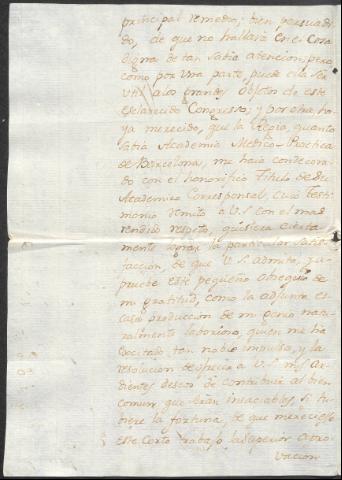 principal remedio; bien persuadi
do, de que no hallará en él cosa
digna de tan sabia atencion; pero
como por una parte, puede ella ser
util a los grandes objetos de este
esclarecido Congreso; y por otra, ha
ya merecido, que la Regia, quanto
sabia Academia Medico-Practica
de Barcelona, me haia condecora
do con el honorifico Titulo de Su
Academico Corresponsal, cuio Testi
monio remito a V.S. con el mas
rendido respeto, quisiera cierta
mente lograr la particular satis
faccion, de que V.S. admita, y a
pruebe este pequeño obsequio de
mi gratitud, como la adjunta es
casa produccion de mi genio natu
ralmente laborioso, quien me ha
excitado tan noble impulso, y la
resolucion de ofrecer a V.S. mis ar
dientes deseos de contribuir al bien
comun, que serán insaciables si tu
biere la fortuna, de que mereciese
este corto trabajo la superior apro
vacion